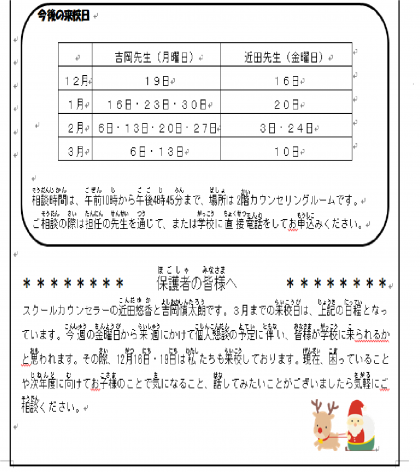 今後の来校日
吉岡先生（月曜日） 近田先生（金曜日）
12月 19日 16日
1月 16日・23日・30日 20日
2月 6日・13日・20日・27日 3日・24日
3月 6日・13日 10日
相談時間は、午前10時から午後4時45分まで、場所は2階カウンセリングルームです。
ご相談の際は担任の先生を通じて、または学校に直接電話をしてお申込みください。
＊＊＊＊＊＊＊＊ 保護者の皆様へ ＊＊＊＊＊＊＊＊
スクールカウンセラーの近田悠香と吉岡慎太郎です。3月までの来校日は、上記の日程となっ
ています。今週の金曜日から来週にかけて個人懇談の予定に伴い、皆様が学校に来られるか
と思われます。その際、12月16日・19日は私たちも来校しております。現在、困っていること
や次年度に向けてお子様のことで気になること、話してみたいことがございましたら気軽にご
相談ください。